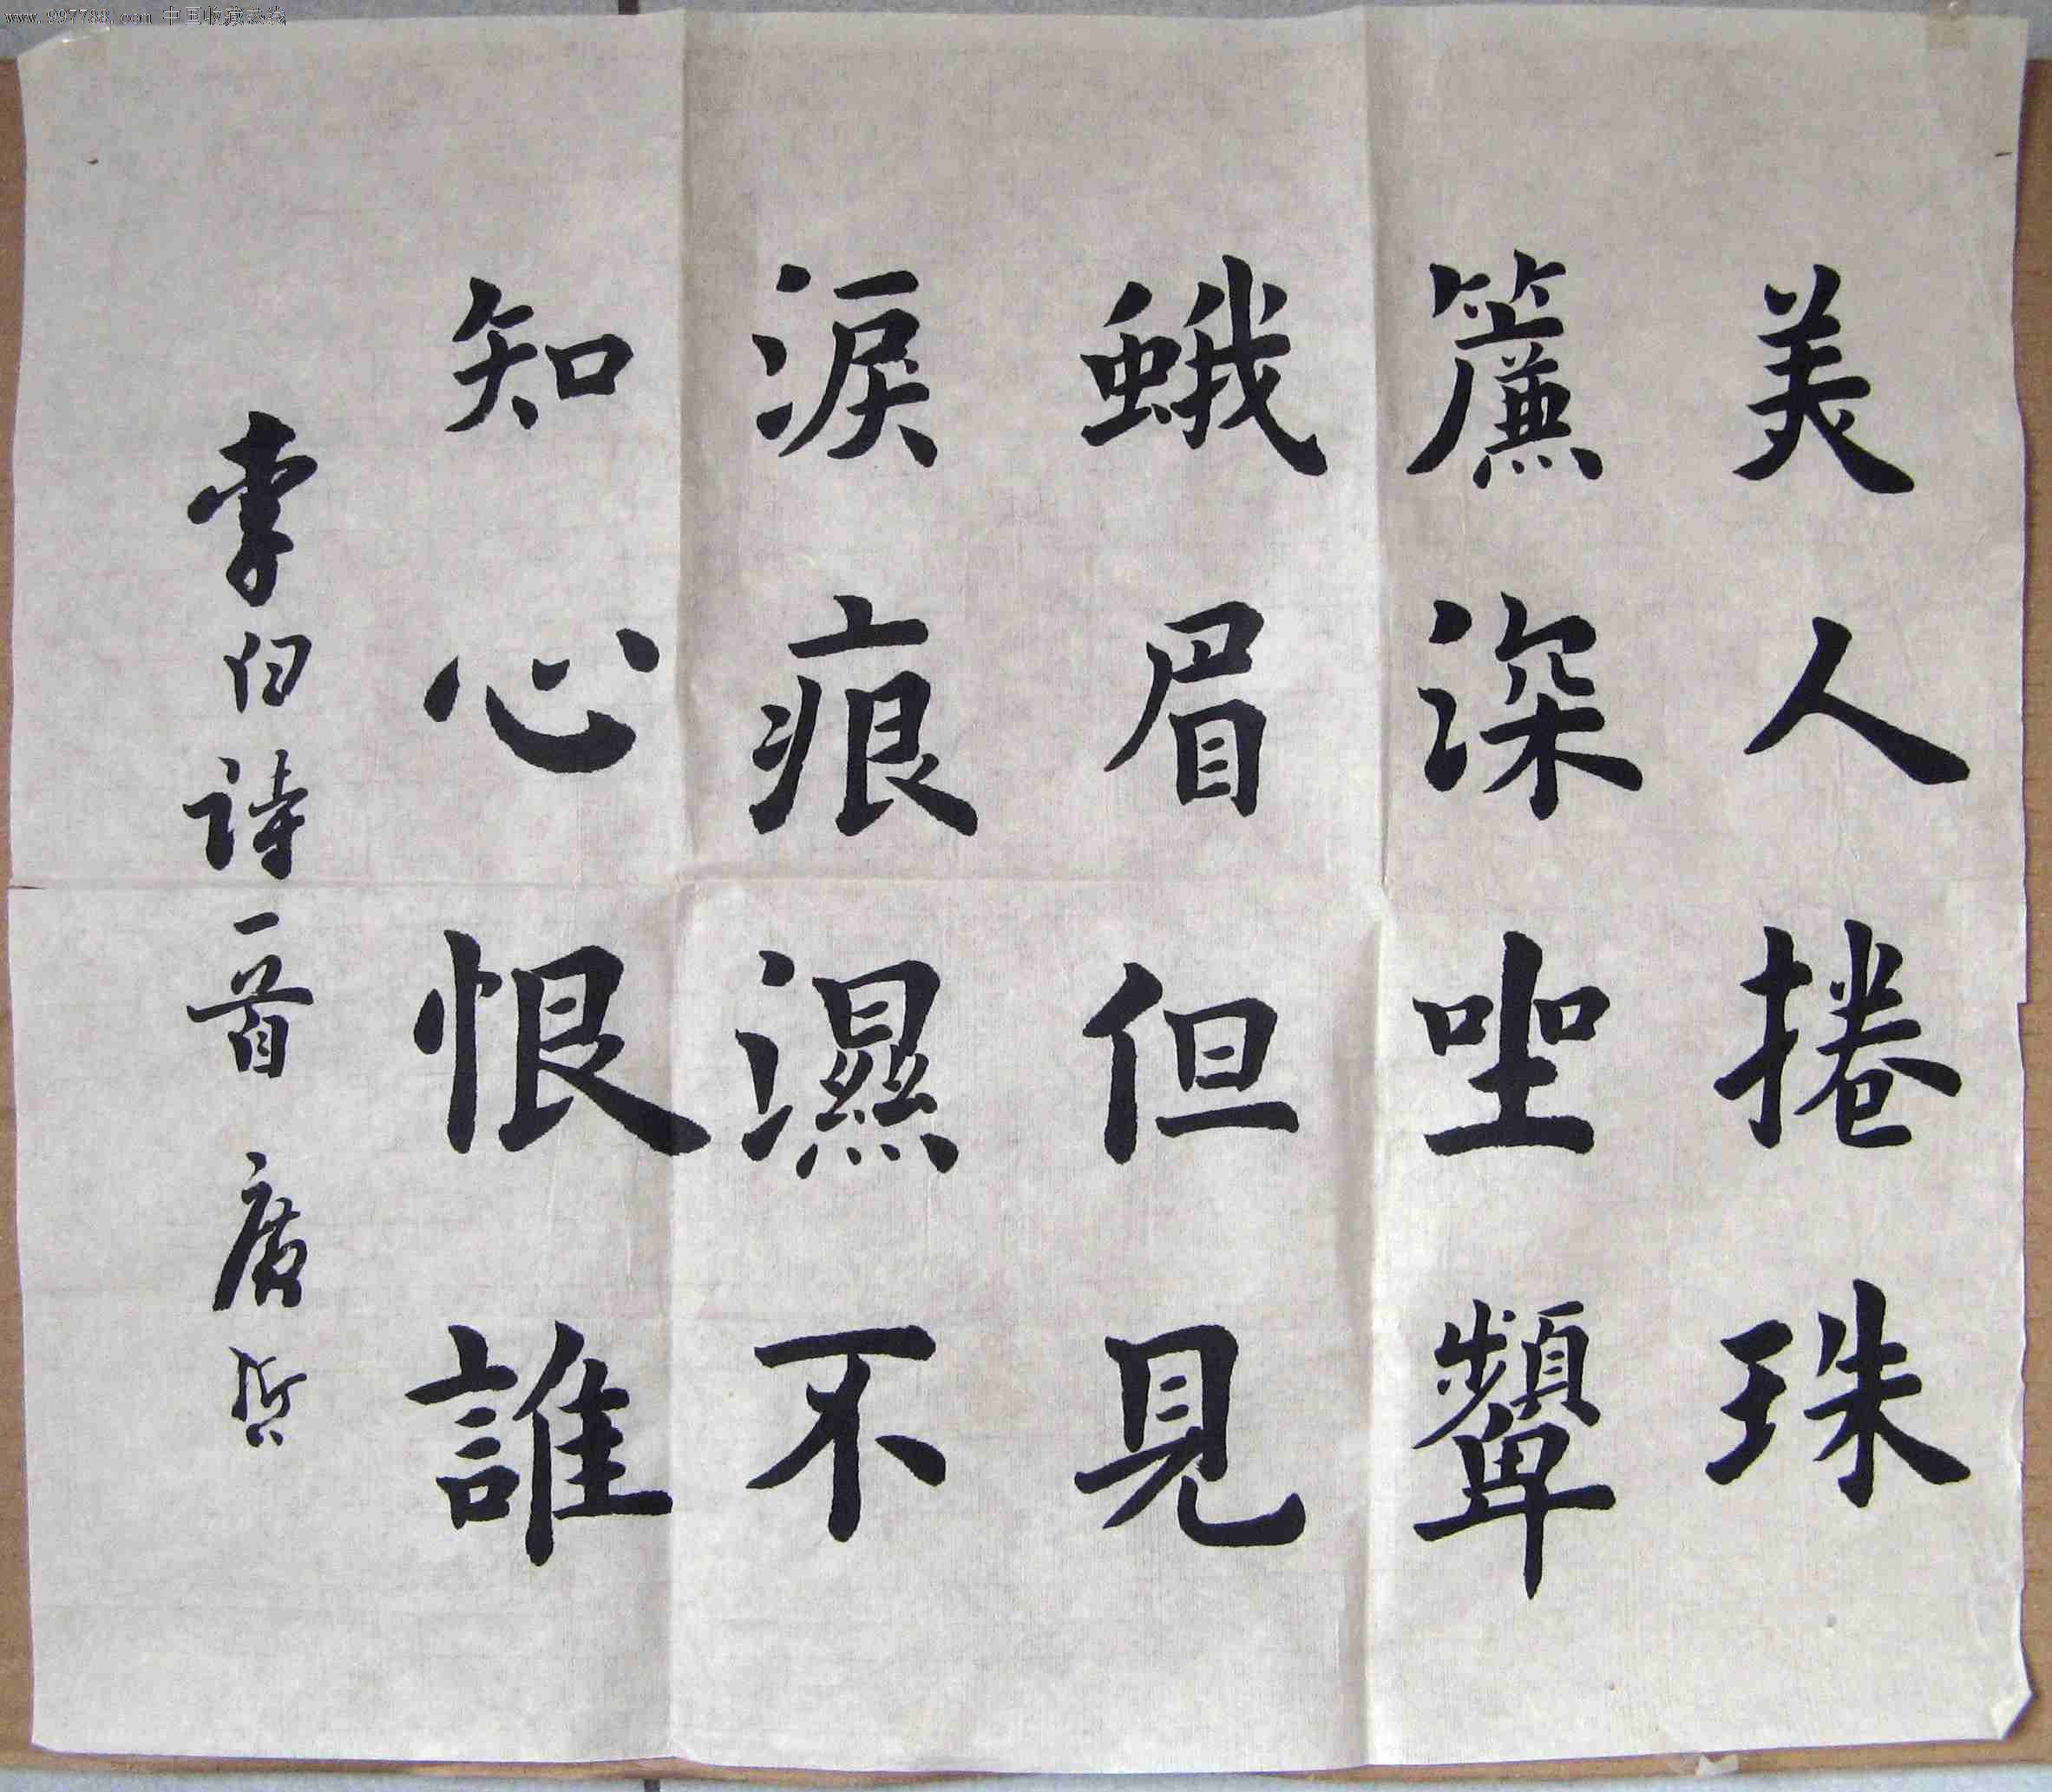 美人捲珠
簾深坐顰
蛾眉但見
淚痕濕不
知心恨誰
李白詩一首 广哲
www.997788.com 中国收藏热线